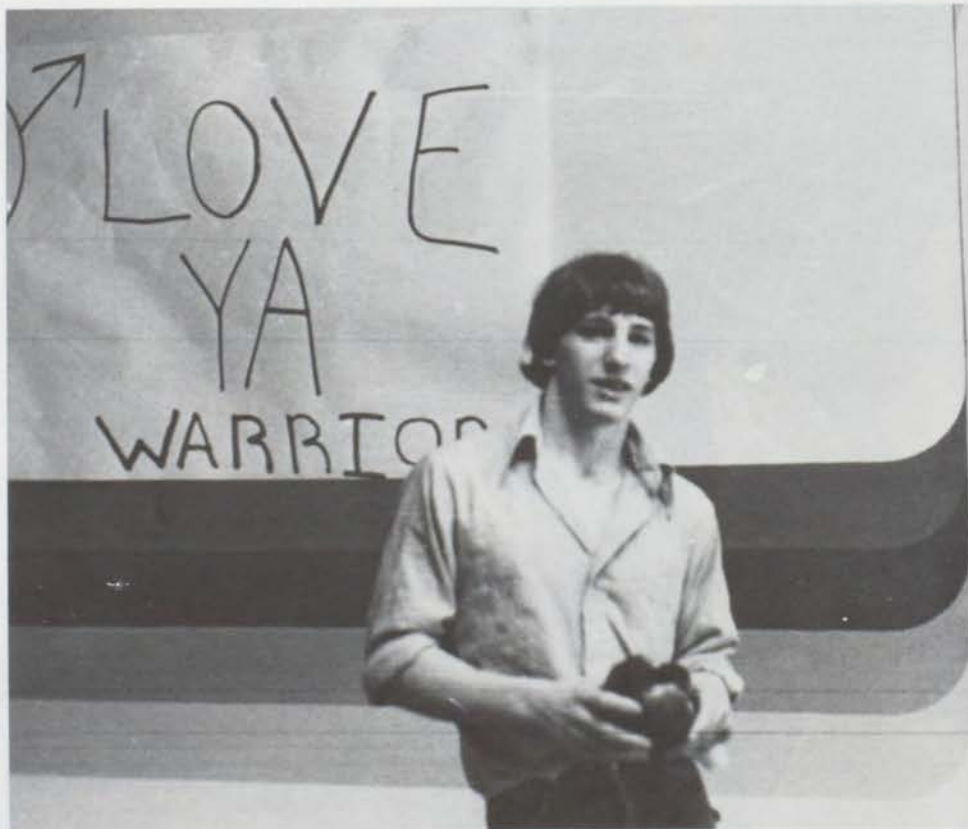 LOVE
YA
WARRIOR